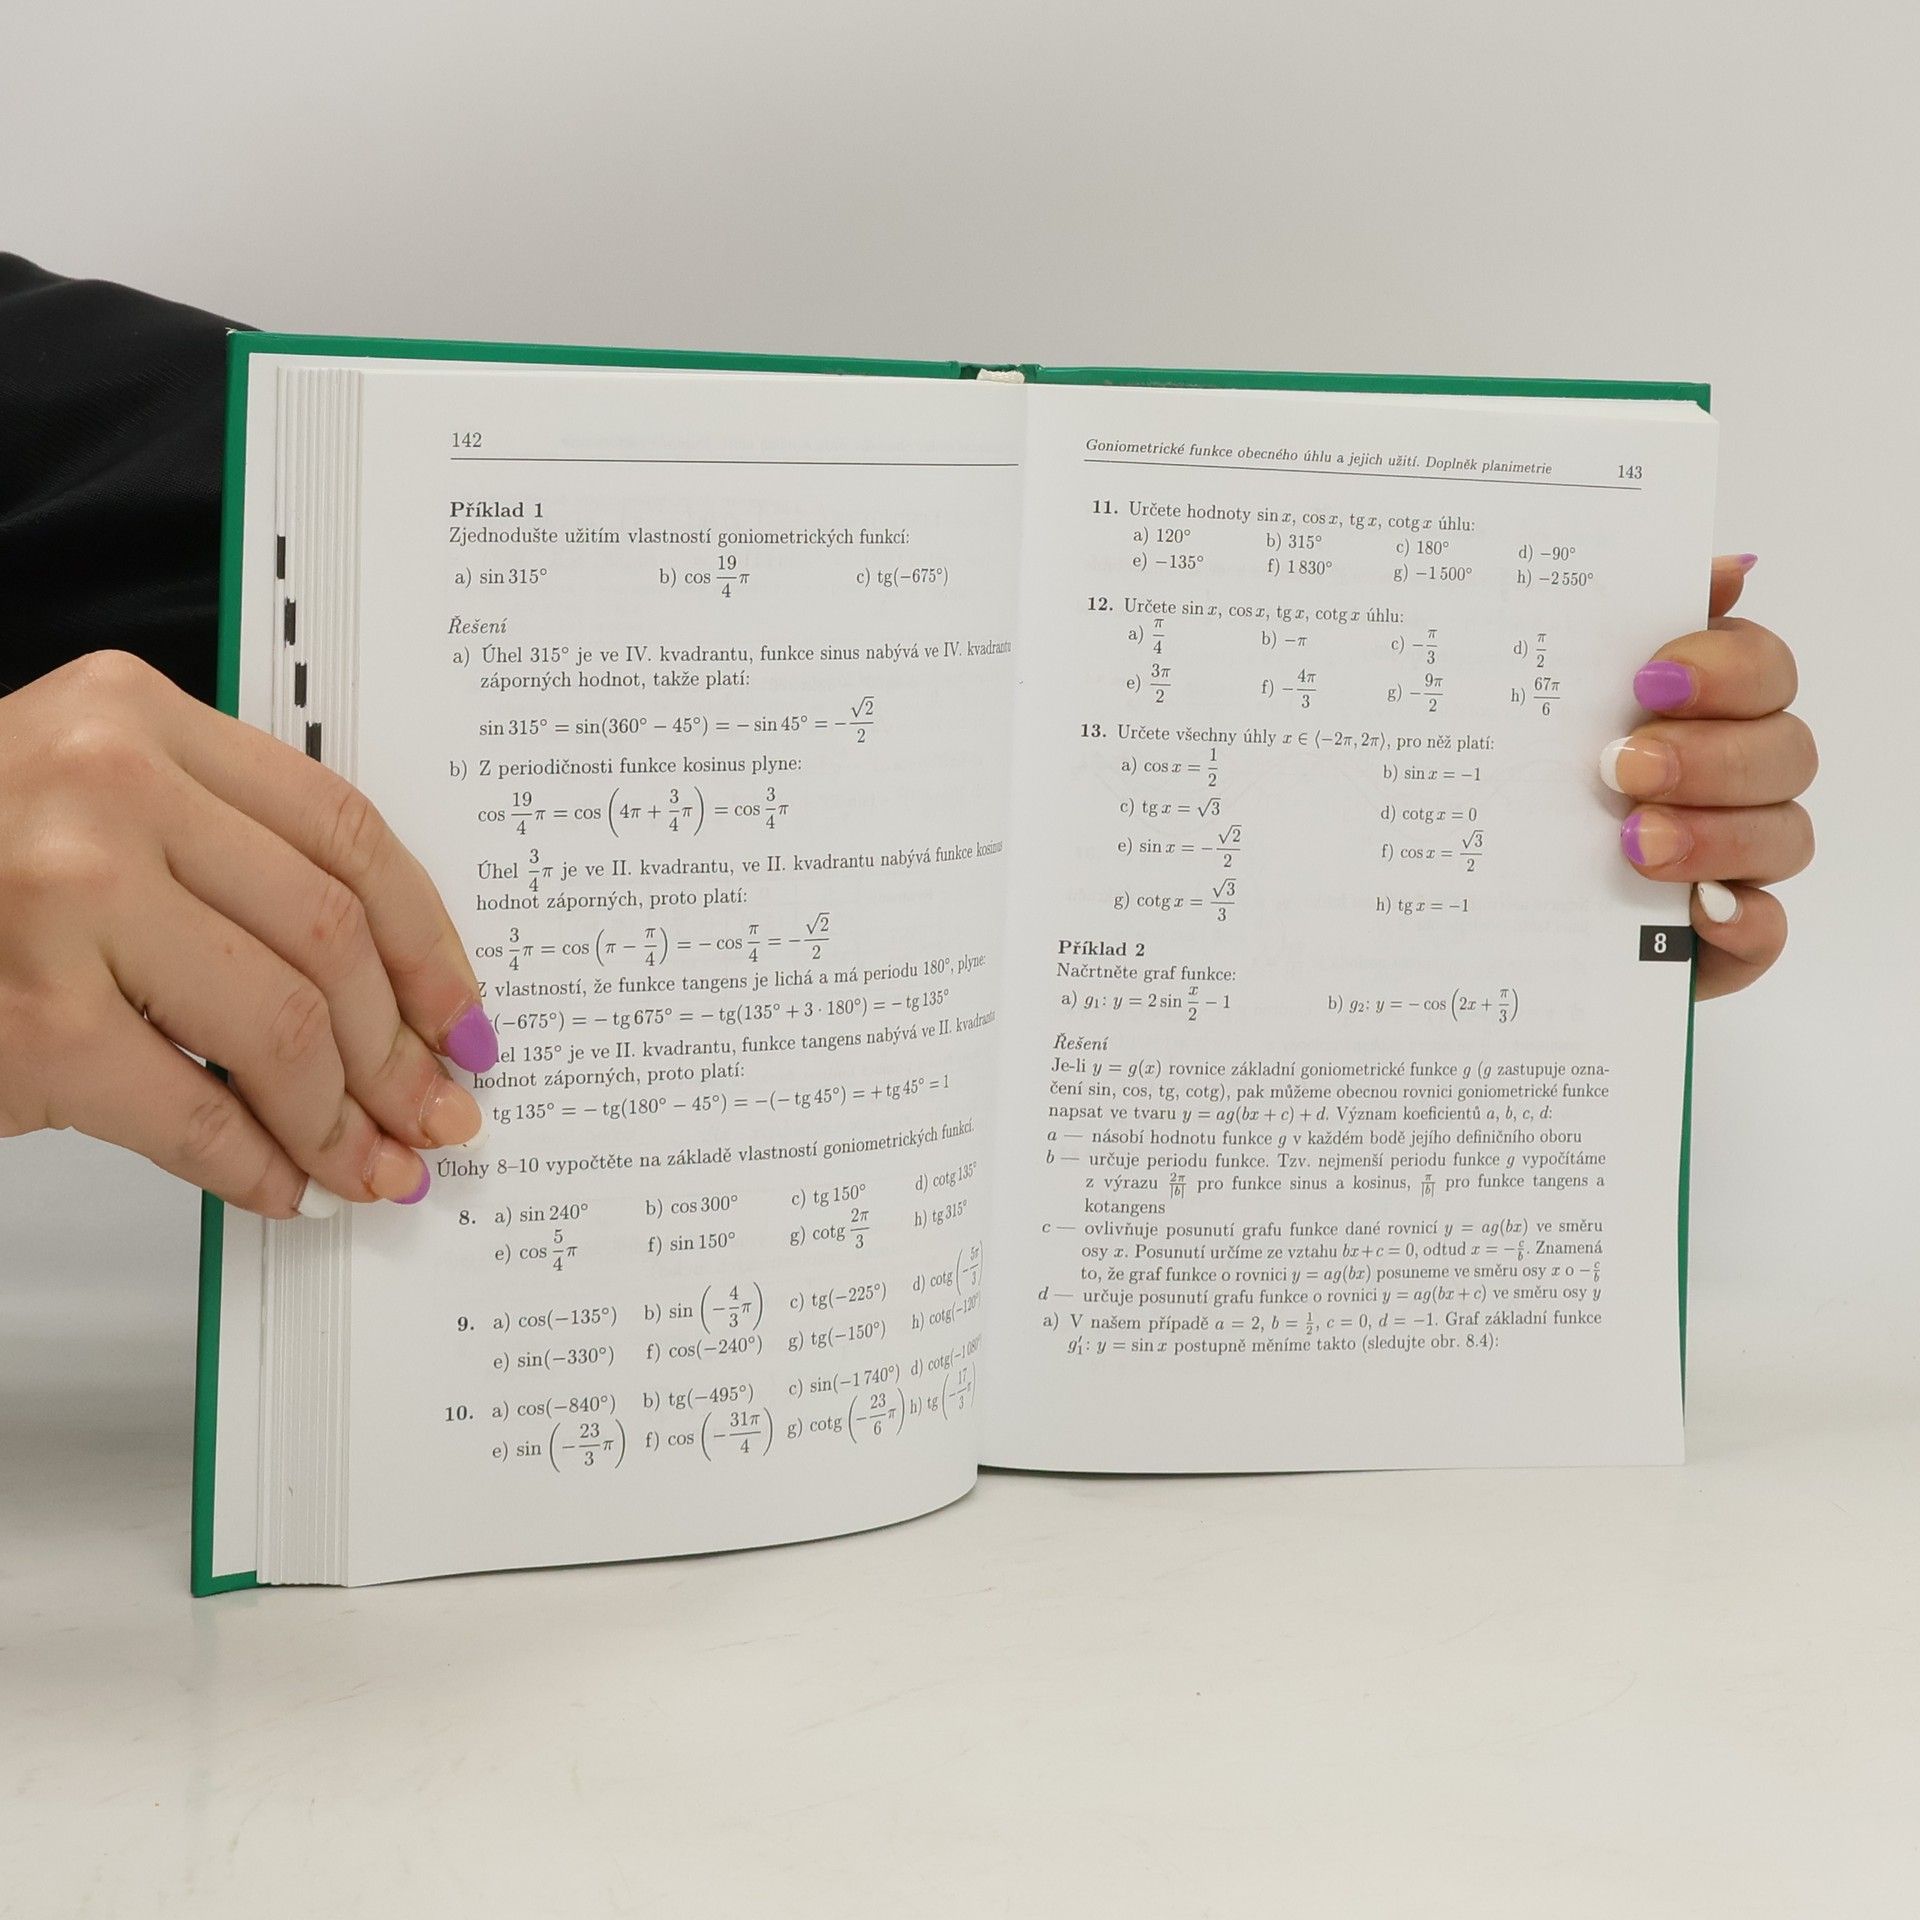 142
Příklad 1
Zjednodušte užitím vlastností goniometrických funkcí:
a) sin 315° b) cos 19/4 π c) tg(−675°)
Řešení
a) Úhel 315° je ve IV. kvadrantu, funkce sinus nabývá ve IV. kvadrantu
záporných hodnot, takže platí:
sin 315° = sin(360° − 45°) = − sin 45° = −√2/2
b) Z periodičnosti funkce kosinus plyne:
cos 19/4 π = cos (4π + 3/4 π) = cos 3/4 π
Úhel 3/4 π je ve II. kvadrantu, ve II. kvadrantu nabývá funkce kosinus
hodnot záporných, proto platí:
cos 3/4 π = cos (π − π/4) = − cos π/4 = −√2/2
Z vlastností, že funkce tangens je lichá a má periodu 180°, plyne:
(−675°) = − tg 675° = − tg(135° + 3 · 180°) = − tg 135°
135° je ve II. kvadrantu, funkce tangens nabývá ve II. kvadrantu
hodnot záporných, proto platí:
tg 135° = − tg(180° − 45°) = −(− tg 45°) = + tg 45° = 1
Úlohy 8–10 vypočtěte na základě vlastností goniometrických funkcí.
8. a) sin 240° b) cos 300° c) tg 150° d) cotg 135°
e) cos 5/4 π f) sin 150° g) cotg 2π/3 h) tg 315°
9. a) cos(−135°) b) sin (−4/3 π) c) tg(−225°) d) cotg (−5π/3)
e) sin(−330°) f) cos(−240°) g) tg(−150°) h) cotg(−120°)
10. a) cos(−840°) b) tg(−495°) c) sin(−1 740°) d) cotg(−1 080°)
e) sin (−23/3 π) f) cos (−31π/4) g) cotg (−23/6 π) h) tg (−17/3 π)
Goniometrické funkce obecného úhlu a jejich užití. Doplněk planimetrie 143
11. Určete hodnoty sin x, cos x, tg x, cotg x úhlu:
a) 120° b) 315° c) 180° d) −90°
e) −135° f) 1 830° g) −1 500° h) −2 550°
12. Určete sin x, cos x, tg x, cotg x úhlu:
a) π/4 b) −π c) −π/3 d) π/2
e) 3π/2 f) −4π/3 g) −9π/2 h) 67π/6
13. Určete všechny úhly x ∈ ⟨−2π, 2π⟩, pro něž platí:
a) cos x = 1/2 b) sin x = −1
c) tg x = √3 d) cotg x = 0
e) sin x = −√2/2 f) cos x = √3/2
g) cotg x = √3/3 h) tg x = −1
8
Příklad 2
Načrtněte graf funkce:
a) g₁: y = 2 sin x/2 − 1 b) g₂: y = − cos (2x + π/3)
Řešení
Je-li y = g(x) rovnice základní goniometrické funkce g (g zastupuje ozna-
čení sin, cos, tg, cotg), pak můžeme obecnou rovnici goniometrické funkce
napsat ve tvaru y = ag(bx + c) + d. Význam koeficientů a, b, c, d:
a — násobí hodnotu funkce g v každém bodě jejího definičního oboru
b — určuje periodu funkce. Tzv. nejmenší periodu funkce g vypočítáme
z výrazu 2π/|b| pro funkce sinus a kosinus, π/|b| pro funkce tangens a
kotangens
c — ovlivňuje posunutí grafu funkce dané rovnicí y = ag(bx) ve směru
osy x. Posunutí určíme ze vztahu bx+c = 0, odtud x = −c/b. Znamená
to, že graf funkce o rovnici y = ag(bx) posuneme ve směru osy x o −c/b
d — určuje posunutí grafu funkce o rovnici y = ag(bx + c) ve směru osy y
a) V našem případě a = 2, b = 1/2, c = 0, d = −1. Graf základní funkce
g₁′: y = sin x postupně měníme takto (sledujte obr. 8.4):